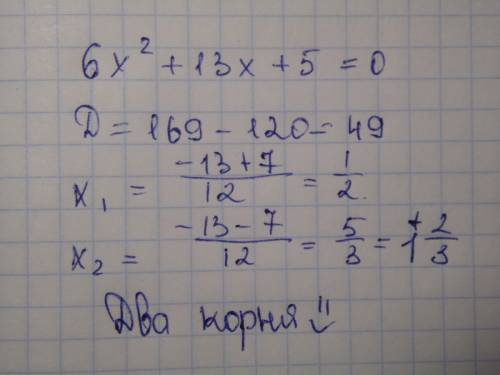 6x² + 13x + 5 = 0
Д = 169 - 120 = 49
x₁ = (-13+7)/12 = 1/2.
x₂ = (-13-7)/12 = 5/3 = 1 2/3
Два корня